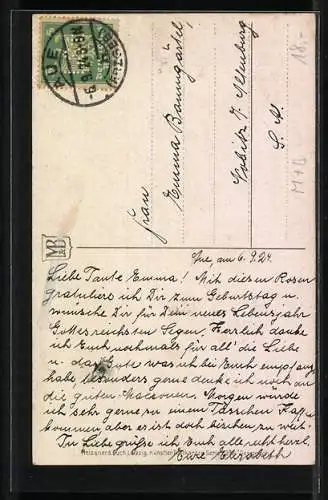 AUE
(ERZGEB.)
-6.9.24. 8-9N
18.-
M+B
Frau
Emma Baumgärtel,
b/ Altenburg
S. A.
MB
Aue, am 6.9.24.
Liebe Tante Emma! Mit diesen Rosen
gratuliere ich Dir zum Geburtstag u.
wünsche Dir für Dein neues Lebensjahr
Gottes reichsten Segen. Herzlich danke
ich Euch nochmals für all' die Liebe
u. das Gute was ich bei Euch empfang.
habe, besonders gerne denke ich noch an
die guten Maccronen. Morgen würde
ich sehr gerne zu einem Tässchen Kaffee
kommen, aber es ist doch bischen zu weit.
In Liebe grüße ich Euch alle recht herzl.
Meissner & Buch, Leipzig, Künstler
Eure Elisabeth